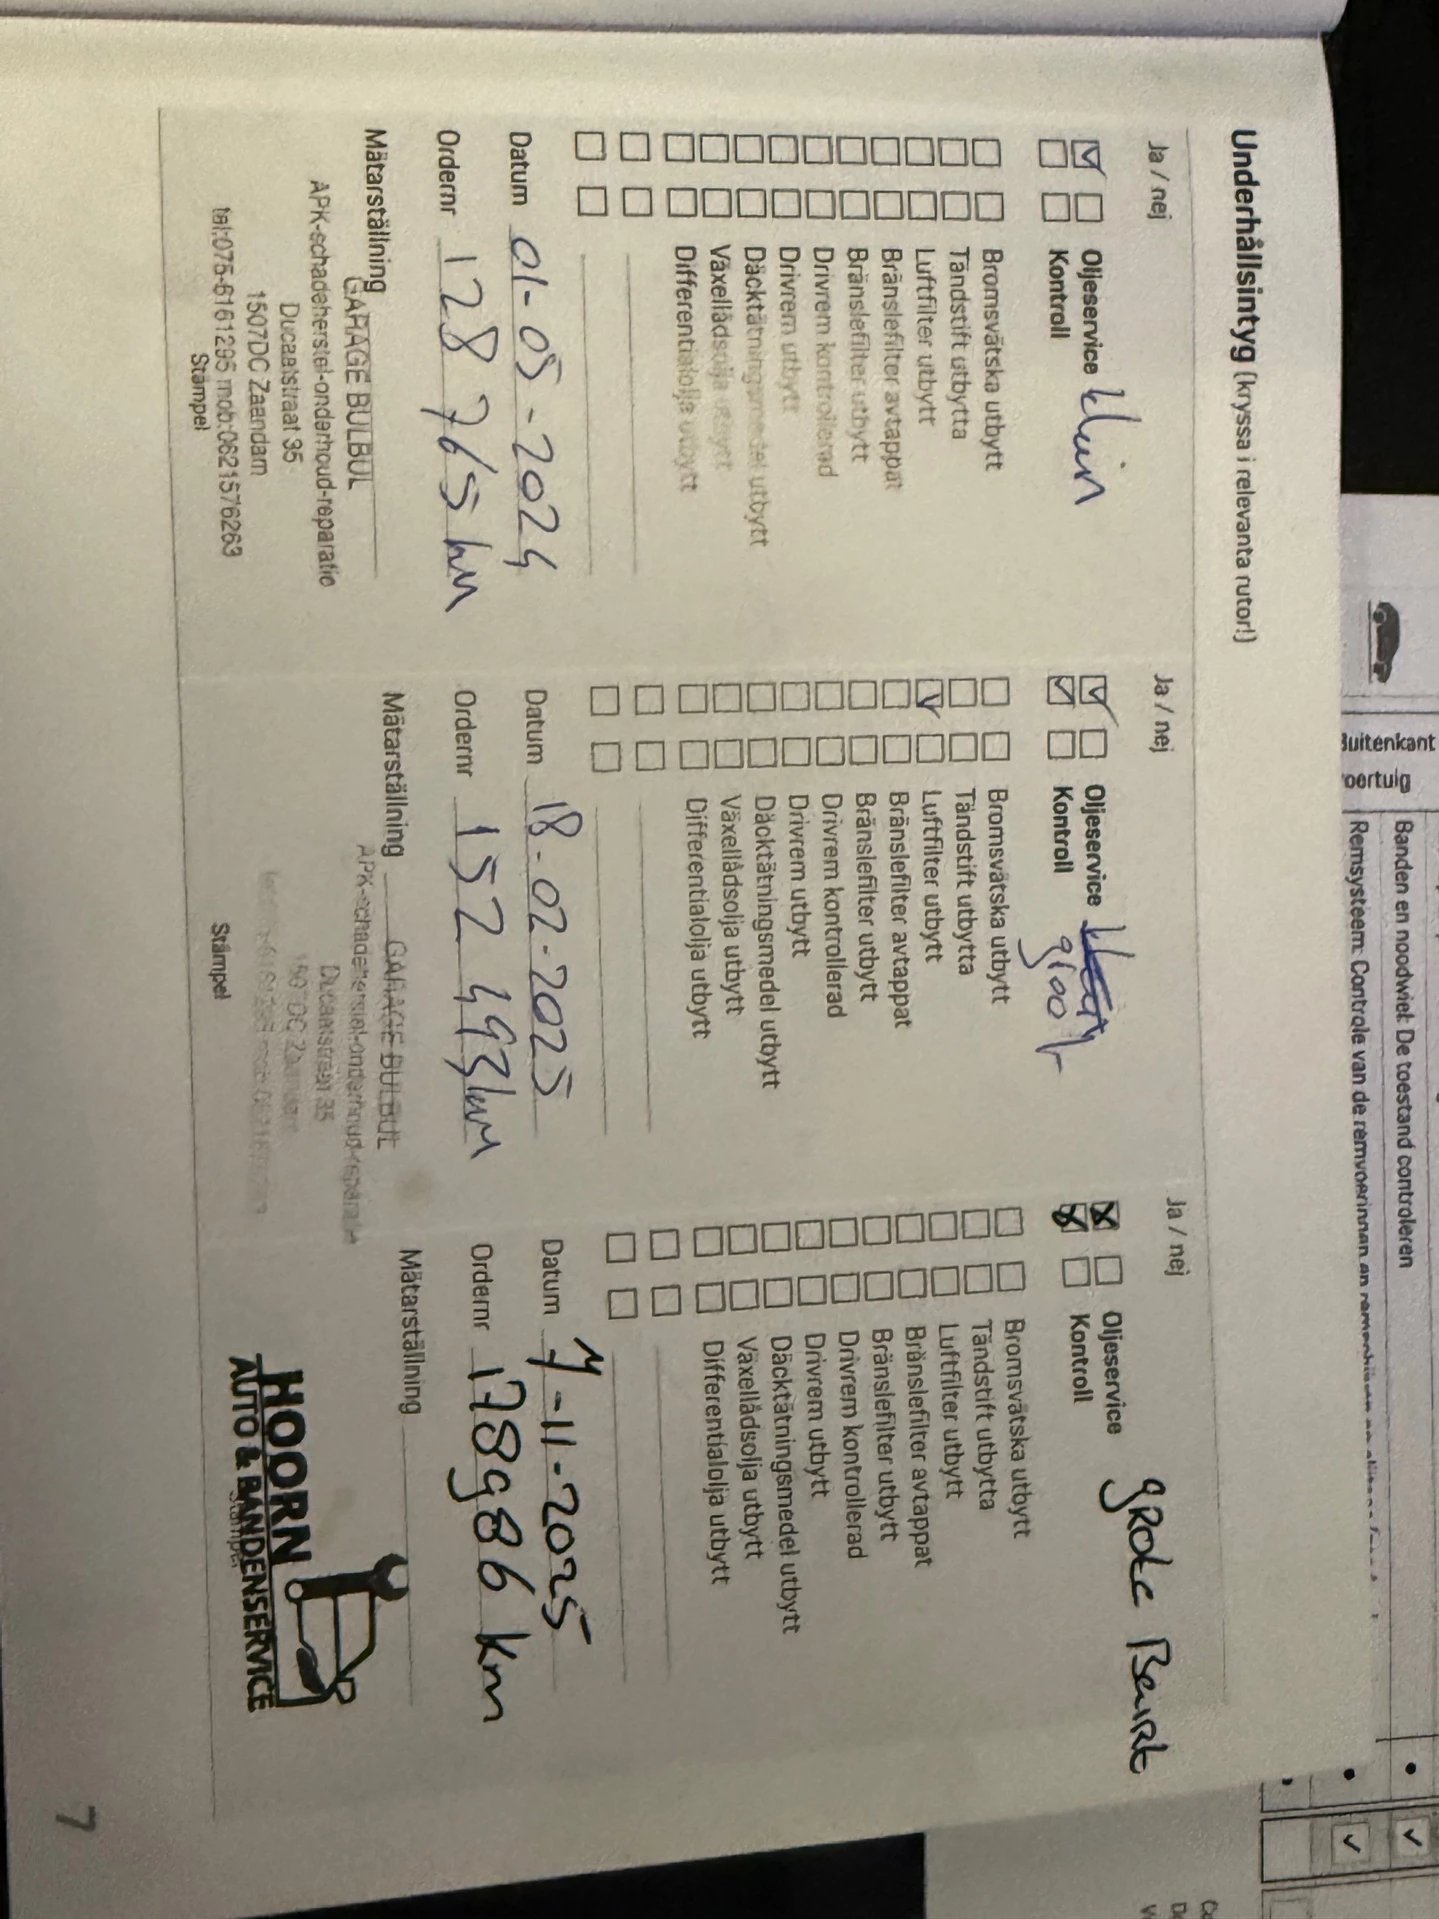 Underhållsintyg (kryssa i relevanta rutor!)
Ja / nej
Oljeservice klein
Kontroll
Bromsvätska utbytt
Tändstift utbytta
Luftfilter utbytt
Bränslefilter avtappat
Bränslefilter utbytt
Drivrem kontrollerad
Drivrem utbytt
Däcktätningsmedel utbytt
Växellådsolja utbytt
Differentialolja utbytt
Datum 01-05-2024
Ordernr 128 765 km
Mätarställning
GARAGE BULBUL
APK-schadeherstel-onderhoud-reparatie
Ducaatstraat 35
1507DC Zaandam
tel:075-6161295 mob:0621576263
Stämpel
Ja / nej
Oljeservice
groot
Kontroll
Bromsvätska utbytt
Tändstift utbytta
Luftfilter utbytt
Bränslefilter avtappat
Bränslefilter utbytt
Drivrem kontrollerad
Drivrem utbytt
Däcktätningsmedel utbytt
Växellådsolja utbytt
Differentialolja utbytt
Datum 18-02-2025
Ordernr 152 493 km
Mätarställning
GARAGE BULBUL
APK-schadeherstel-onderhoud-reparatie
Ducaatstraat 35
1507DC Zaandam
Stämpel
Ja / nej
grote Beurt
Oljeservice
Kontroll
Bromsvätska utbytt
Tändstift utbytta
Luftfilter utbytt
Bränslefilter avtappat
Bränslefilter utbytt
Drivrem kontrollerad
Drivrem utbytt
Däcktätningsmedel utbytt
Växellådsolja utbytt
Differentialolja utbytt
Datum 4-11-2025
Ordernr 178986 km
Mätarställning
HOORN
AUTO & BANDENSERVICE
Stämpel
7
Buitenkant
Banden en noodwiel: De toestand controleren
Remsysteem: Controle van de remvoeringen en